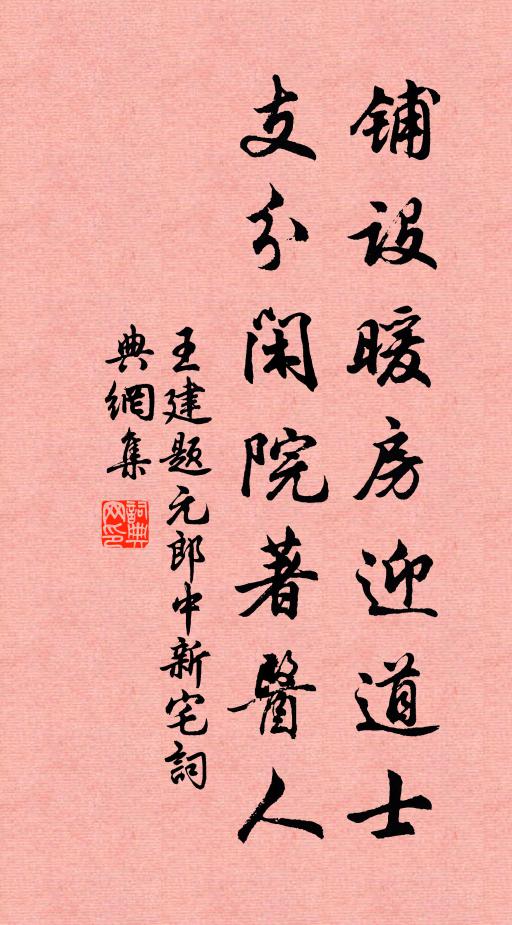 铺设暖房迎道士
支分闲院著醫人
王建题元郎中新宅詞
典網集
詞典网印